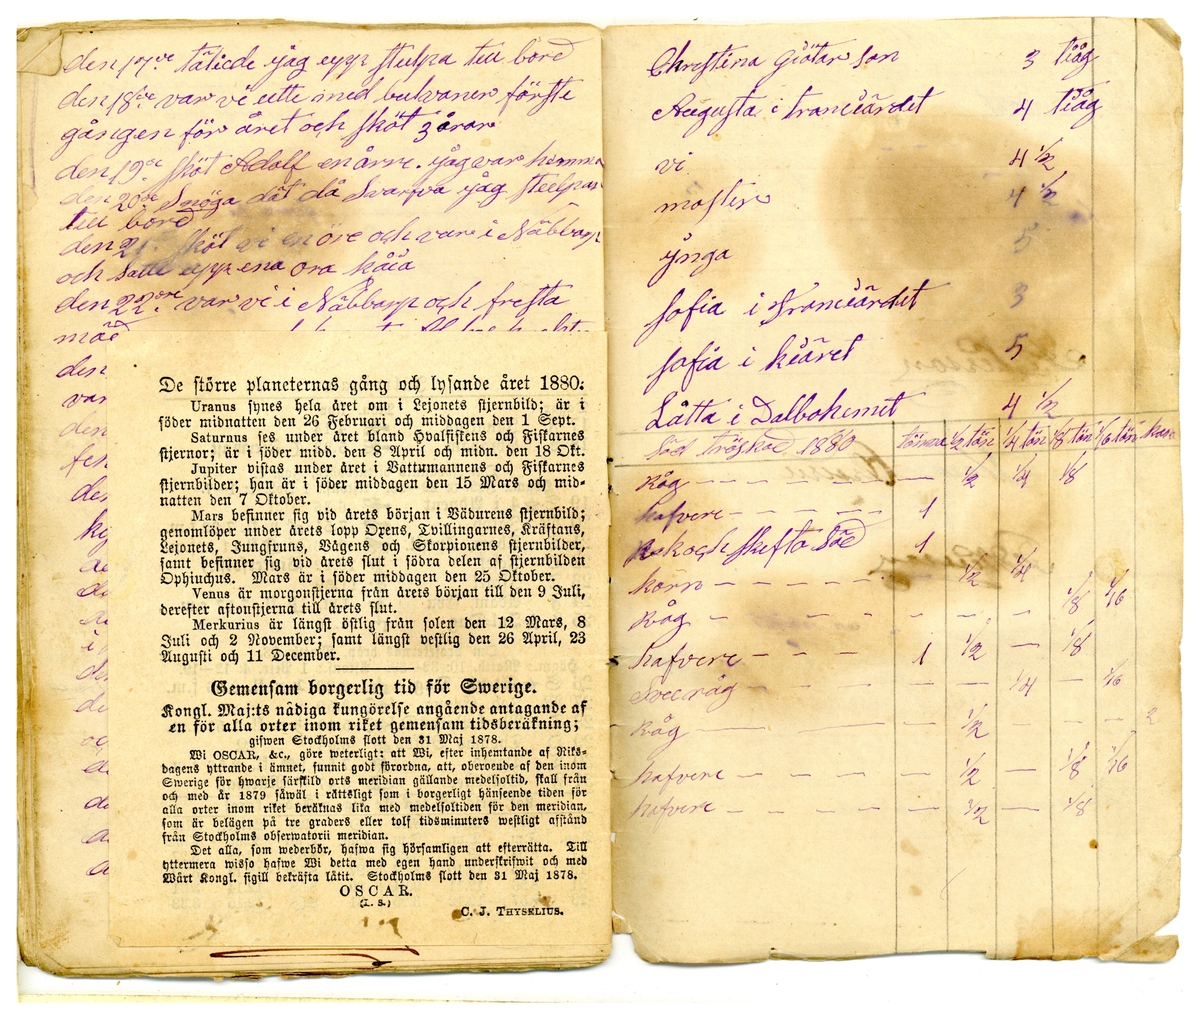 den 17de täliede jag upp stulpa till bord
den 18de var vi utte med bulvaner förste
gången för året och sköt 3 årar
den 19de sköt Adolf en årre. jag var hemma
den 20de Snöga dät då Svarva jag stulpar
till bord
den 21 sköt vi en öre och var i Näbbarp
och Satte upp ena ora kåia
den 22dre var vi i Näbbarp och fresta
mäd
den
var
den
den
De större planeternas gång och lysande året 1880:
Uranus synes hela året om i Lejonets stjernbild; är i
söder midnatten den 26 Februari och middagen den 1 Sept.
Saturnus ses under året bland Hvalfiskens och Fiskarnes
stjernor; är i söder midd. den 8 April och midn. den 18 Okt.
Jupiter vistas under året i Vattumannens och Fiskarnes
stjernbilder; han är i söder middagen den 15 Mars och mid-
natten den 7 Oktober.
Mars befinner sig vid årets början i Vädurens stjernbild;
genomlöper under årets lopp Oxens, Tvillingarnes, Kräftans,
Lejonets, Jungfruns, Vågens och Skorpionens stjernbilder,
samt befinner sig vid årets slut i södra delen af stjernbilden
Ophiuchus. Mars är i söder middagen den 25 Oktober.
Venus är morgonstjerna från årets början till den 9 Juli,
derefter aftonstjerna till årets slut.
Merkurius är längst östlig från solen den 12 Mars, 8
Juli och 2 November; samt längst vestlig den 26 April, 23
Augusti och 11 December.
Gemensam borgerlig tid för Swerige.
Kongl. Maj:ts nådiga kungörelse angående antagande af
en för alla orter inom riket gemensam tidsberäkning;
gifwen Stockholms slott den 31 Maj 1878.
Wi OSCAR, &c., göre weterligt: att Wi, efter inhemtande af Riks-
dagens yttrande i ämnet, funnit godt förordna, att, oberoende af den inom
Swerige för hwarje särskild orts meridian gällande medelsoltid, skall från
och med år 1879 såwäl i rättsligt som i borgerligt hänseende tiden för
alla orter inom riket beräknas lika med medelsoltiden för den meridian,
som är belägen på tre graders eller tolf tidsminuters westligt afstånd
från Stockholms observatorii meridian.
Det alla, som wederbör, hafwa sig hörsamligen att efterrätta. Till
yttermera wisso hafwe Wi detta med egen hand underskrifwit och med
Wårt Kongl. sigill bekräfta låtit. Stockholms slott den 31 Maj 1878.
OSCAR.
(L. S.)
C. J. THYSELIUS.
Christina Giötar son 3 tiåg
Augusta i tranciärdet 4 tiåg
vi 4 1/2
moster 4 1/2
ynga 5
Sofia i tranciärdet 3
Sofia i kiäret 5
Låtta i Dalbohemet 4 1/2
Säd tröskad 1880 tönna 1/2 tön 1/4 tön 1/8 tön 1/16 tön
Råg — — — — 1/2 1/4 1/8
hafvere — — — — 1
Rskogh skefta Säd 1
korn — — — — 1/2 1/4
Råg — — — — — — 1/8 1/16
hafvere — — — 1 1/2 — 1/8
Sveeråg — — — — — 1/4 — 1/16
Råg — — — — 1/2 — — — 2
hafvere — — — — 1/2 — 1/8 1/16
hafvere — — — — 3/2 — 1/8